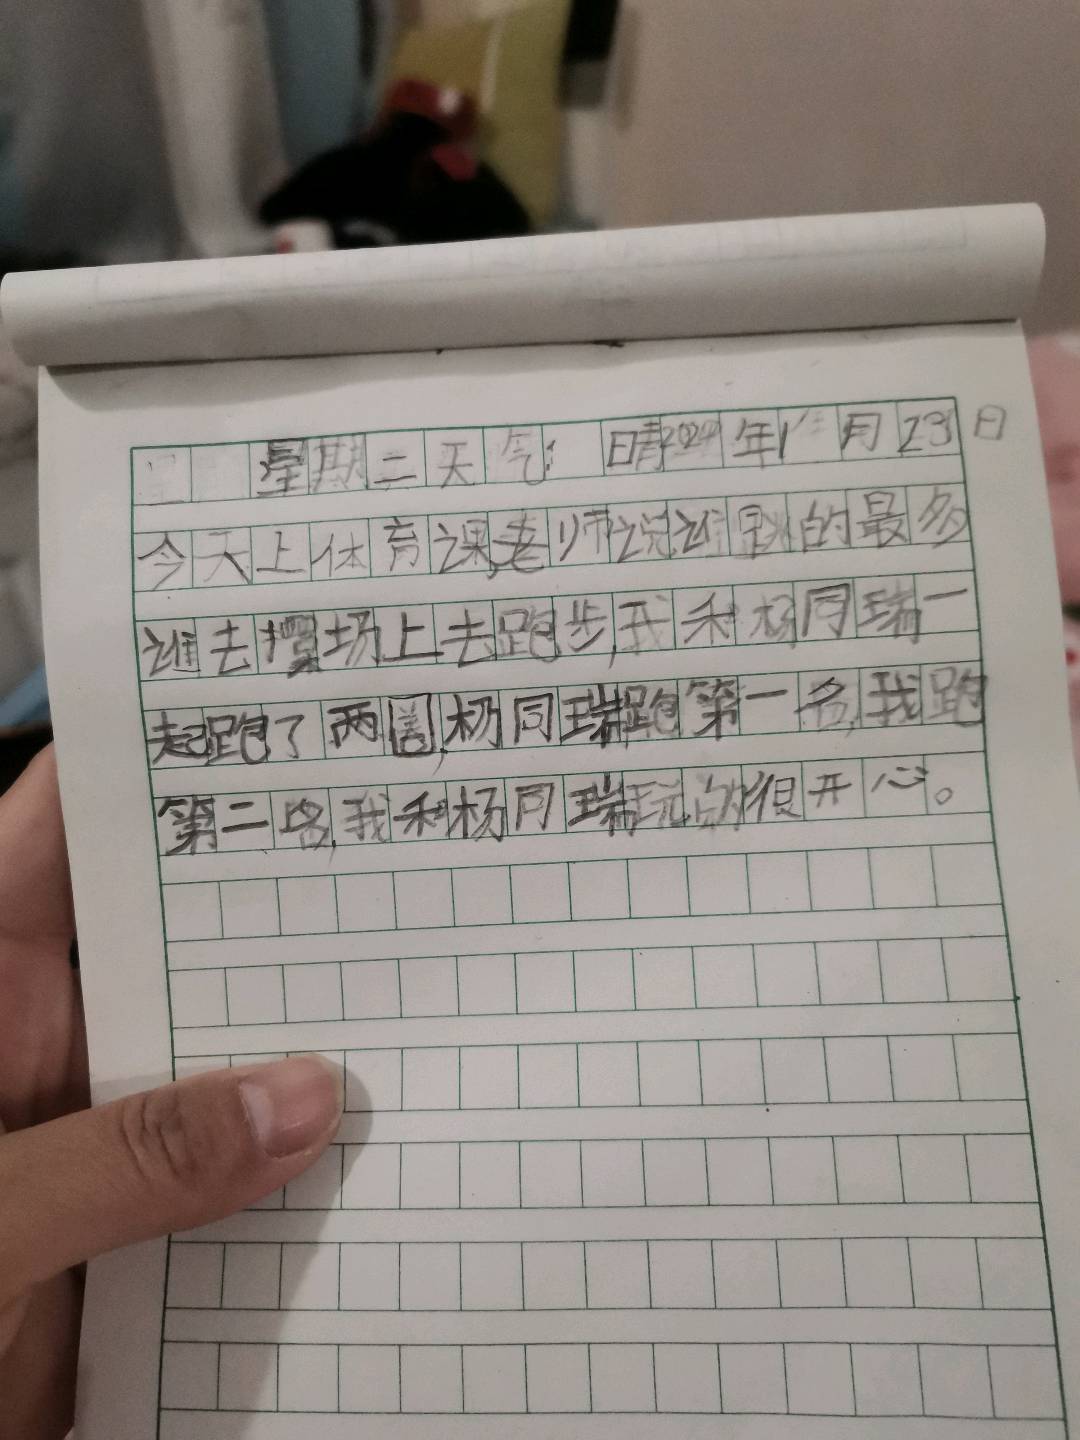 星期二天气:晴2024年1月23日
今天上体育课,老师说谁跳的最多
谁去操场上去跑步,我和杨同瑞一
起跑了两圈,杨同瑞跑第一名,我跑
第二名,我和杨同瑞玩的很开心。